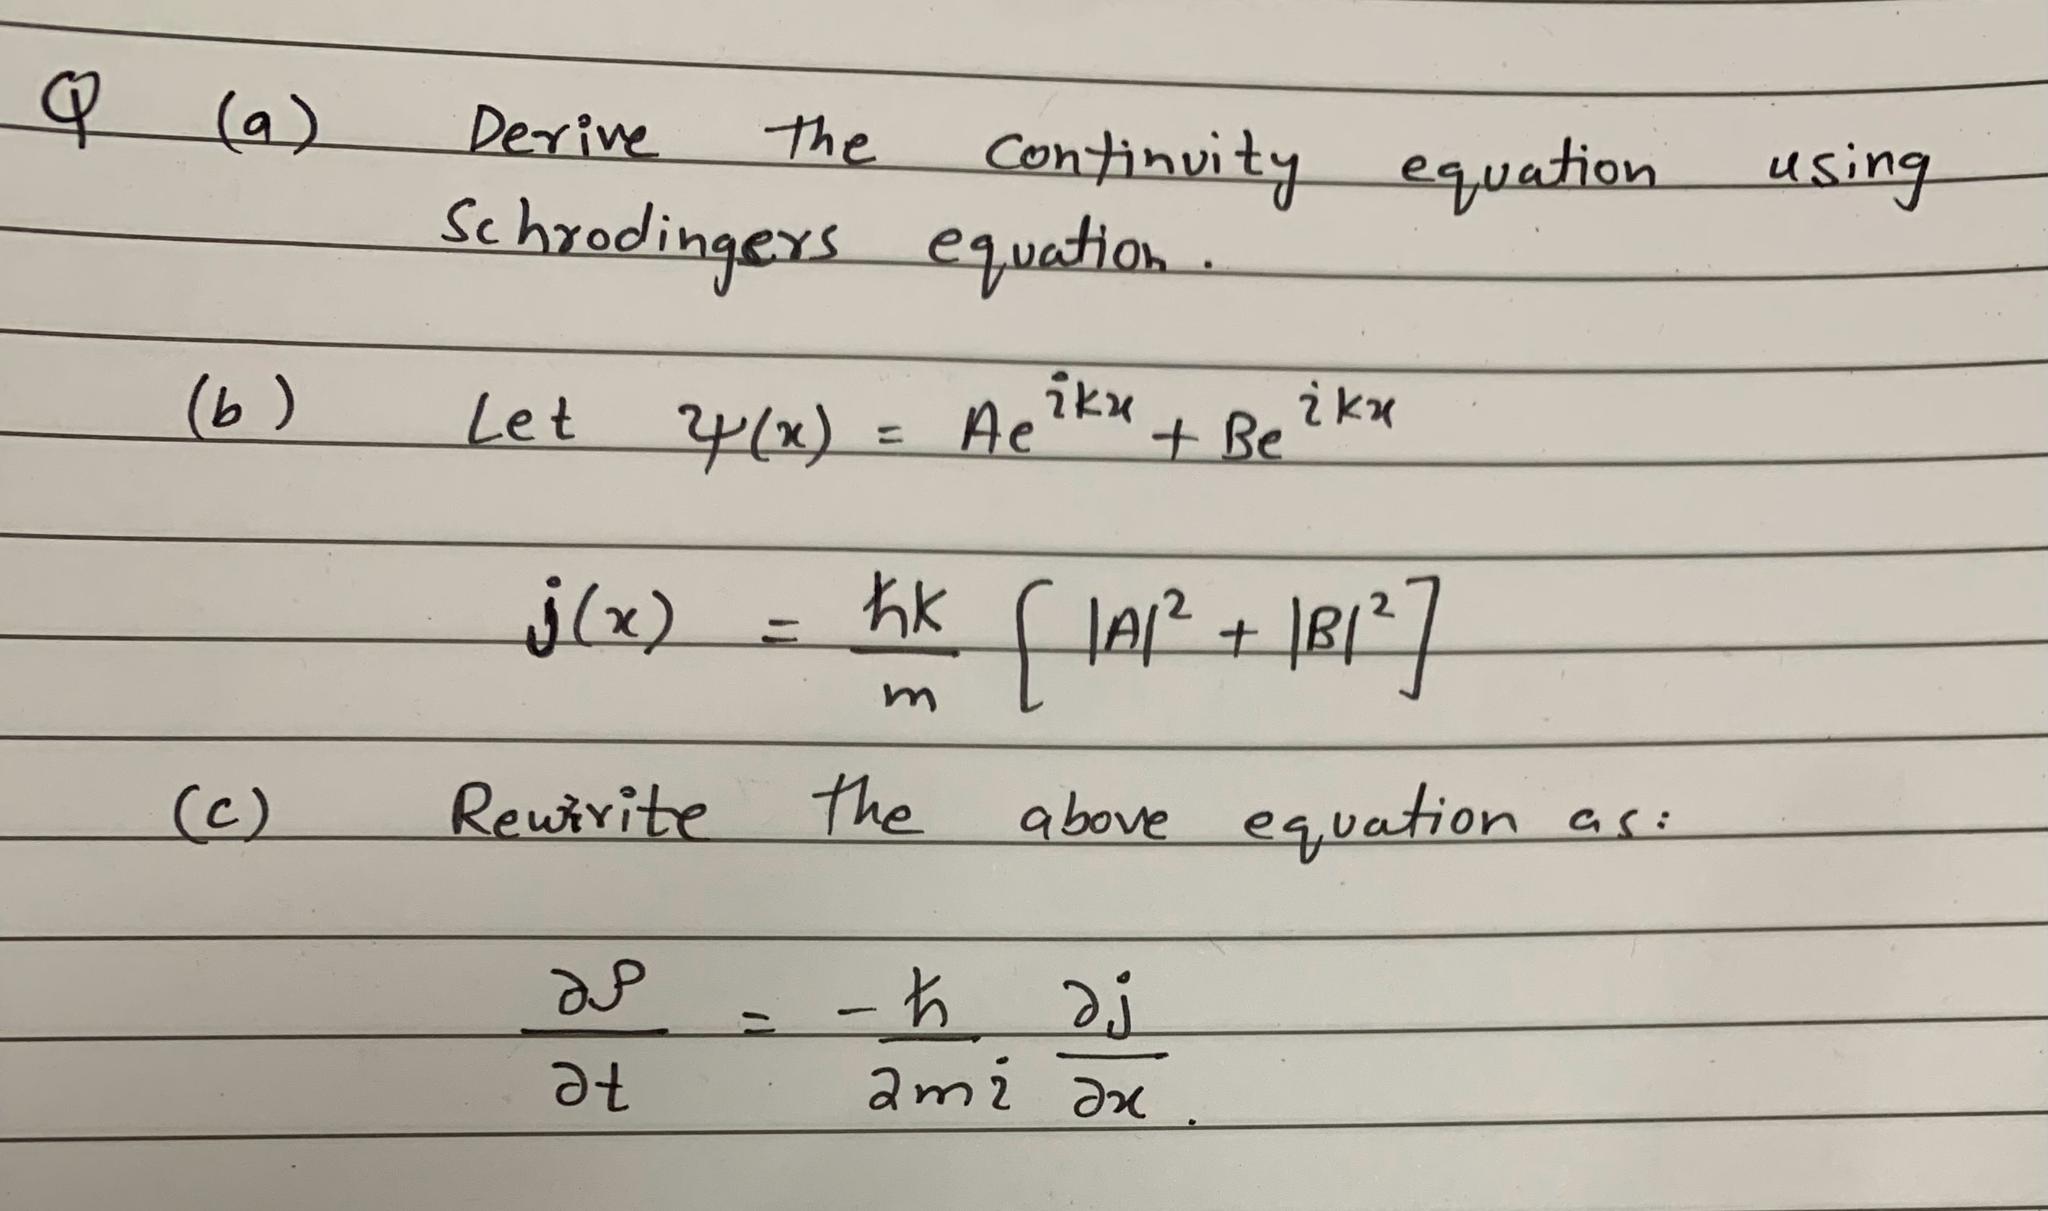 Q (a) Derive the continuity equation using
Schrodingers equation.
(b) Let ψ(x) = Ae^{ikx} + Be^{ikx}
j(x) = ħk/m [|A|² + |B|²]
(c) Rewrite the above equation as:
∂ρ/∂t = -ħ/2mi ∂j/∂x.